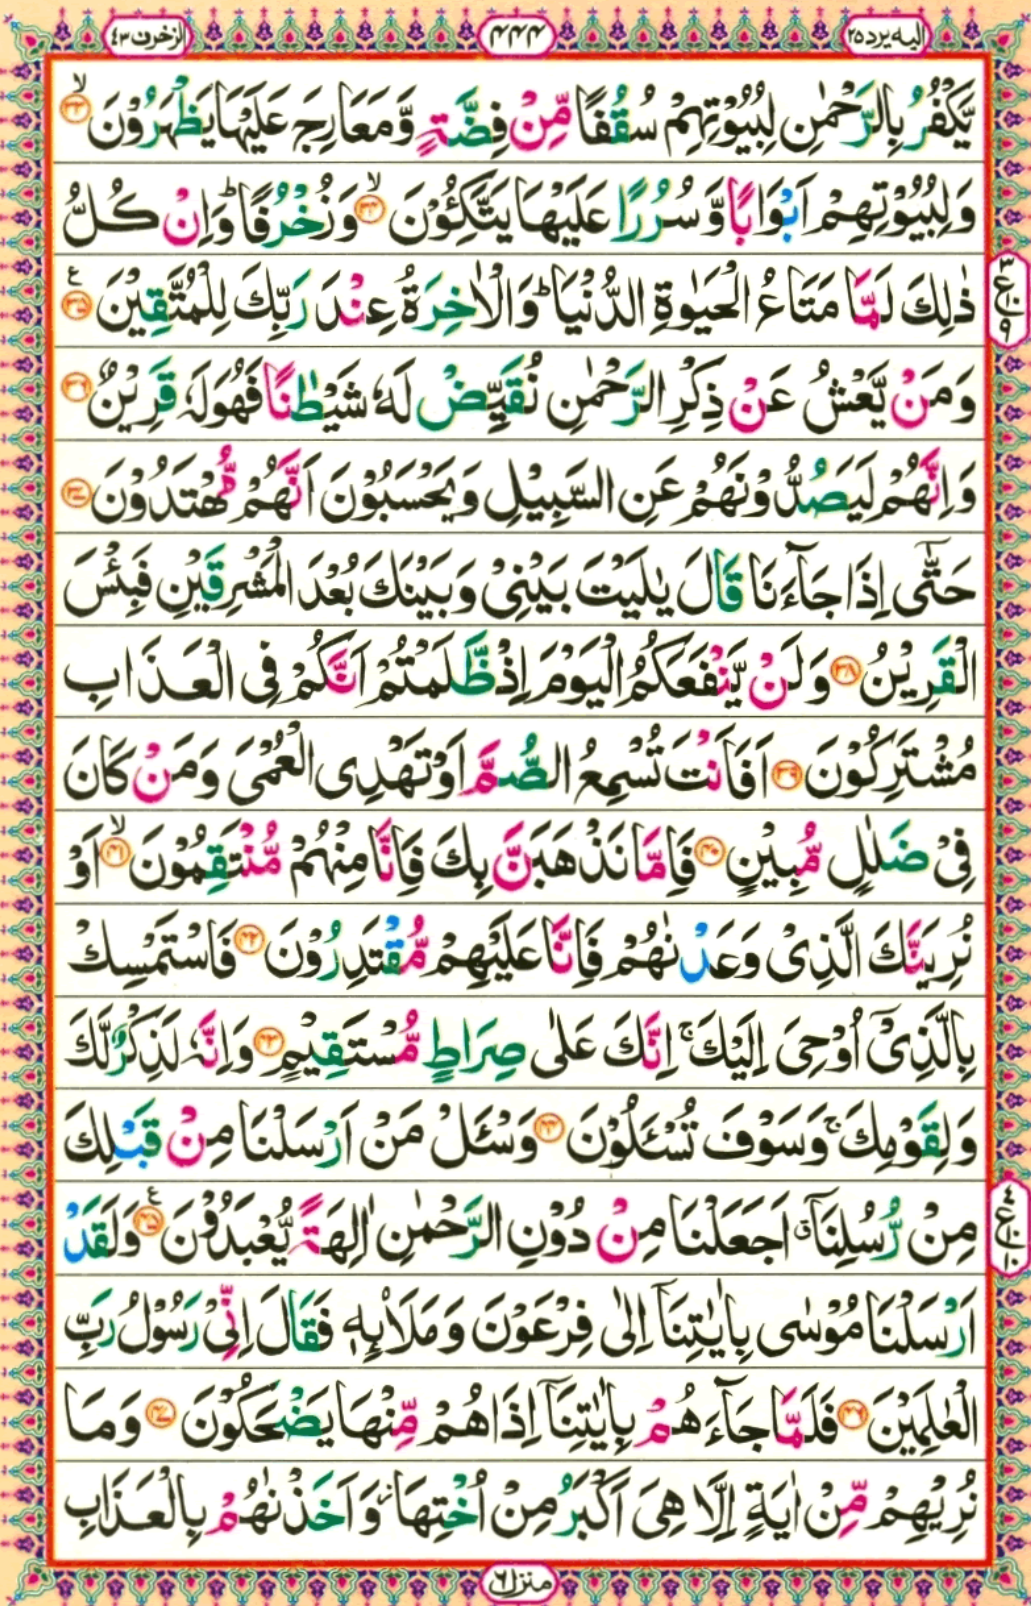 الیه یرد ۲۵ ۴۴۴ الزخرف ۴۳
یَّكْفُرُ بِالرَّحْمٰنِ لِبُیُوْتِهِمْ سُقُفًا مِّنْ فِضَّةٍ وَّمَعَارِجَ عَلَیْهَا یَظْهَرُوْنَ ۙ۳۳
وَلِبُیُوْتِهِمْ اَبْوَابًا وَّسُرُرًا عَلَیْهَا یَتَّكِئُوْنَ ۙ۳۴ وَزُخْرُفًا ؕ وَاِنْ كُلُّ
ذٰلِكَ لَمَّا مَتَاعُ الْحَیٰوةِ الدُّنْیَا ؕ وَالْاٰخِرَةُ عِنْدَ رَبِّكَ لِلْمُتَّقِیْنَ ۳۵ ع
وَمَنْ یَّعْشُ عَنْ ذِكْرِ الرَّحْمٰنِ نُقَیِّضْ لَهٗ شَیْطٰنًا فَهُوَ لَهٗ قَرِیْنٌ ۳۶
وَاِنَّهُمْ لَیَصُدُّوْنَهُمْ عَنِ السَّبِیْلِ وَیَحْسَبُوْنَ اَنَّهُمْ مُّهْتَدُوْنَ ۳۷
حَتّٰۤی اِذَا جَآءَنَا قَالَ یٰلَیْتَ بَیْنِیْ وَبَیْنَكَ بُعْدَ الْمَشْرِقَیْنِ فَبِئْسَ
الْقَرِیْنُ ۳۸ وَلَنْ یَّنْفَعَكُمُ الْیَوْمَ اِذْ ظَّلَمْتُمْ اَنَّكُمْ فِی الْعَذَابِ
مُشْتَرِكُوْنَ ۳۹ اَفَاَنْتَ تُسْمِعُ الصُّمَّ اَوْ تَهْدِی الْعُمْیَ وَمَنْ كَانَ
فِیْ ضَلٰلٍ مُّبِیْنٍ ۴۰ فَاِمَّا نَذْهَبَنَّ بِكَ فَاِنَّا مِنْهُمْ مُّنْتَقِمُوْنَ ۙ۴۱ اَوْ
نُرِیَنَّكَ الَّذِیْ وَعَدْنٰهُمْ فَاِنَّا عَلَیْهِمْ مُّقْتَدِرُوْنَ ۴۲ فَاسْتَمْسِكْ
بِالَّذِیْۤ اُوْحِیَ اِلَیْكَ ۚ اِنَّكَ عَلٰی صِرَاطٍ مُّسْتَقِیْمٍ ۴۳ وَاِنَّهٗ لَذِكْرٌ لَّكَ
وَلِقَوْمِكَ ۚ وَسَوْفَ تُسْئَلُوْنَ ۴۴ وَسْئَلْ مَنْ اَرْسَلْنَا مِنْ قَبْلِكَ
مِنْ رُّسُلِنَاۤ ۗ اَجَعَلْنَا مِنْ دُوْنِ الرَّحْمٰنِ اٰلِهَةً یُّعْبَدُوْنَ ۴۵ ع وَلَقَدْ
اَرْسَلْنَا مُوْسٰی بِاٰیٰتِنَاۤ اِلٰی فِرْعَوْنَ وَمَلَا۠ئِهٖ فَقَالَ اِنِّیْ رَسُوْلُ رَبِّ
الْعٰلَمِیْنَ ۴۶ فَلَمَّا جَآءَهُمْ بِاٰیٰتِنَاۤ اِذَا هُمْ مِّنْهَا یَضْحَكُوْنَ ۴۷ وَمَا
نُرِیْهِمْ مِّنْ اٰیَةٍ اِلَّا هِیَ اَكْبَرُ مِنْ اُخْتِهَا ؗ وَاَخَذْنٰهُمْ بِالْعَذَابِ
منزل ۶